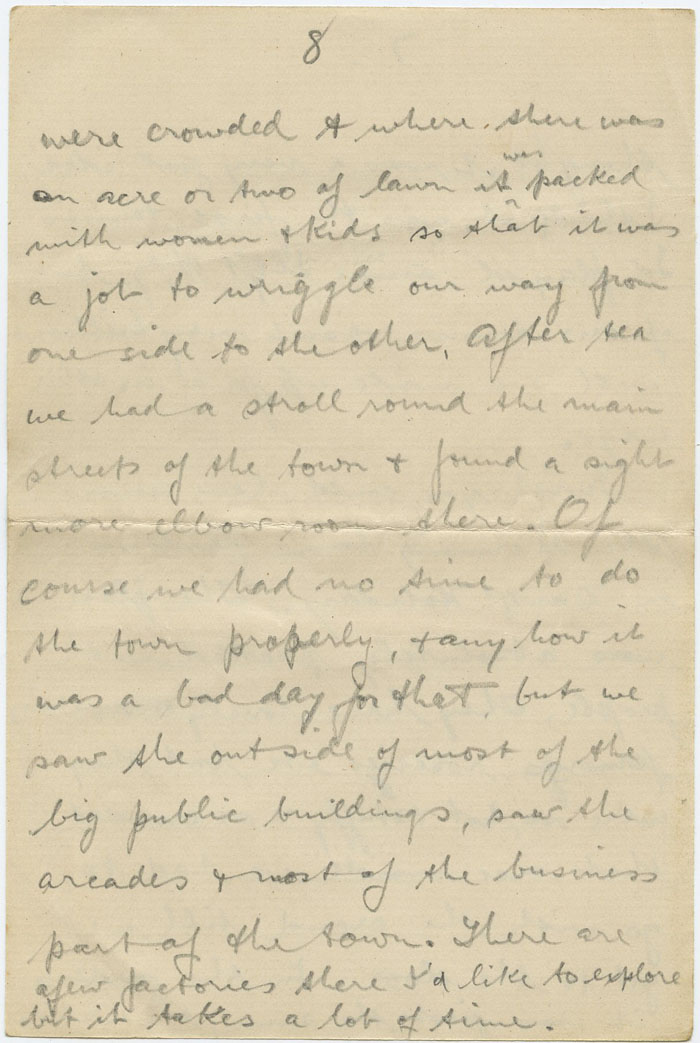 8
were crowded & where there was
an acre or two of lawn it was packed
with women & kids so that it was
a job to wriggle our way from
one side to the other. After tea
we had a stroll round the main
streets of the town & found a sight
more elbow room there. Of
course we had no time to do
the town properly, & any how it
was a bad day for that, but we
saw the outside of most of the
big public buildings, saw the
arcades & most of the business
part of the town. There are
a few factories there I'd like to explore
but it takes a lot of time.